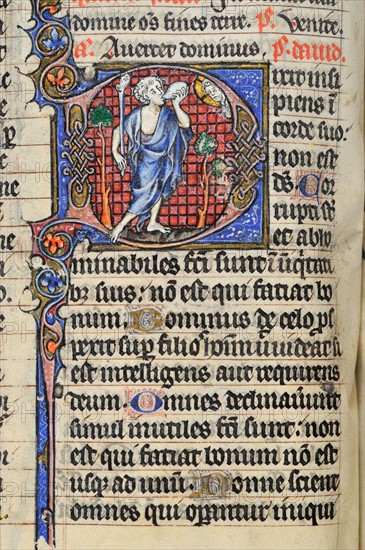 domine oms fines terre. ps. Venite.
a. Avertet dominus. ps. david.
Dixit insi
piens i
corde suo:
non est
ds. Cor
rupti st
et abho
minabiles fcti sunt i iniqtati
bz suis: no est qui faciat bo
num. Dominus de celo ps
perit sup filios hoim: ut videat si
est intelligens aut requirens
deum. Omnes declinaverunt
simul inutiles fcti sunt: non
est qui faciat bonum no est
usq ad unu. Nonne scient
omnes qui operantur iniqui